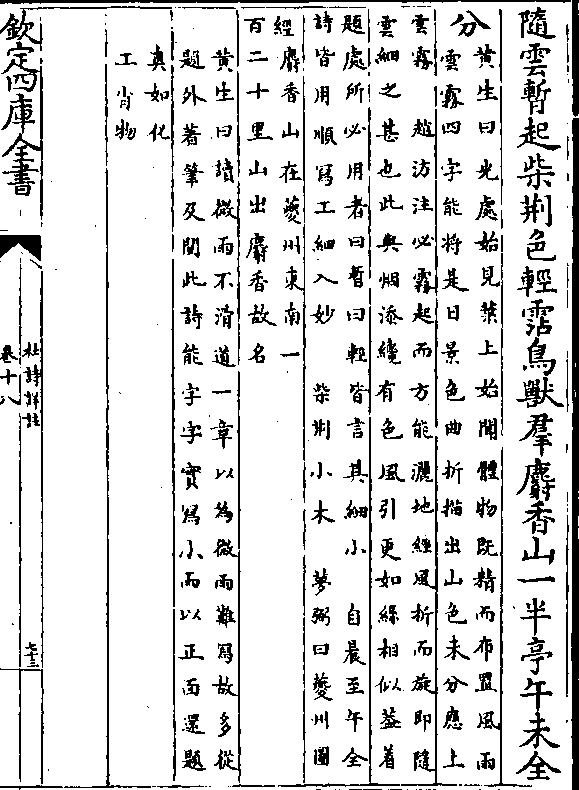 隨雲暫起柴荆色輕霑鳥獸羣麝香山一半亭午未全
分
黄生曰光處始見葉上始聞體物既精而布置風雨
雲霧四字能將是日景色曲折描出山色未分應上
雲霧 趙汸注必霧起而方能灑地經風折而旋即隨
雲細之甚也此與烟添纔有色風引更如絲相似葢着
題處所必用者曰暫曰輕皆言其細小 自晨至午全
詩皆用順寫工細入妙 柴荆小木 夢弼曰夔州圖
經麝香山在夔州東南一
百二十里山出麝香故名
黄生曰讀微雨不滑道一章以為微雨難寫故多從
題外著筆及閲此詩能字字實寫小雨以正面還題
真如化
工肖物
欽定四庫全書
杜詩詳註
卷十八
七十三